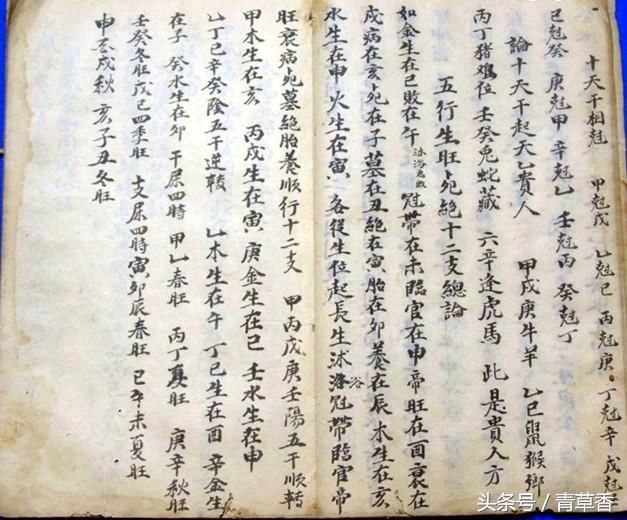 十天干相尅 甲尅戊 乙尅己 丙尅庚 丁尅辛 戊尅壬
己尅癸 庚尅甲 辛尅乙 壬尅丙 癸尅丁
論十天干起天乙貴人 甲戊庚牛羊 乙己鼠猴鄉
丙丁猪雞位 壬癸兔蛇藏 六辛逢虎馬 此是貴人方
五行生旺死絕十二支總論
如金生在巳敗在午 沐浴為敗 冠帶在未臨官在申帝旺在酉衰在
戌病在亥死在子墓在丑絕在寅胎在卯養在辰木生在亥
水生在申火生在寅 各從生位起長生沐浴冠帶臨官帝
旺衰病死墓絕胎養順行十二支 甲丙戊庚壬陽五干順轉
甲木生在亥 丙戊生在寅 庚金生在巳 壬水生在申
乙丁己辛癸陰五干逆轉 乙木生在午 丁己生在酉 辛金生
在子 癸水生在卯 干属四時 甲乙春旺 丙丁夏旺 庚辛秋旺
壬癸冬旺戊己四季旺 支属四時寅卯辰春旺 巳午未夏旺
申酉戌秋 亥子丑冬旺
头条号 / 青草香